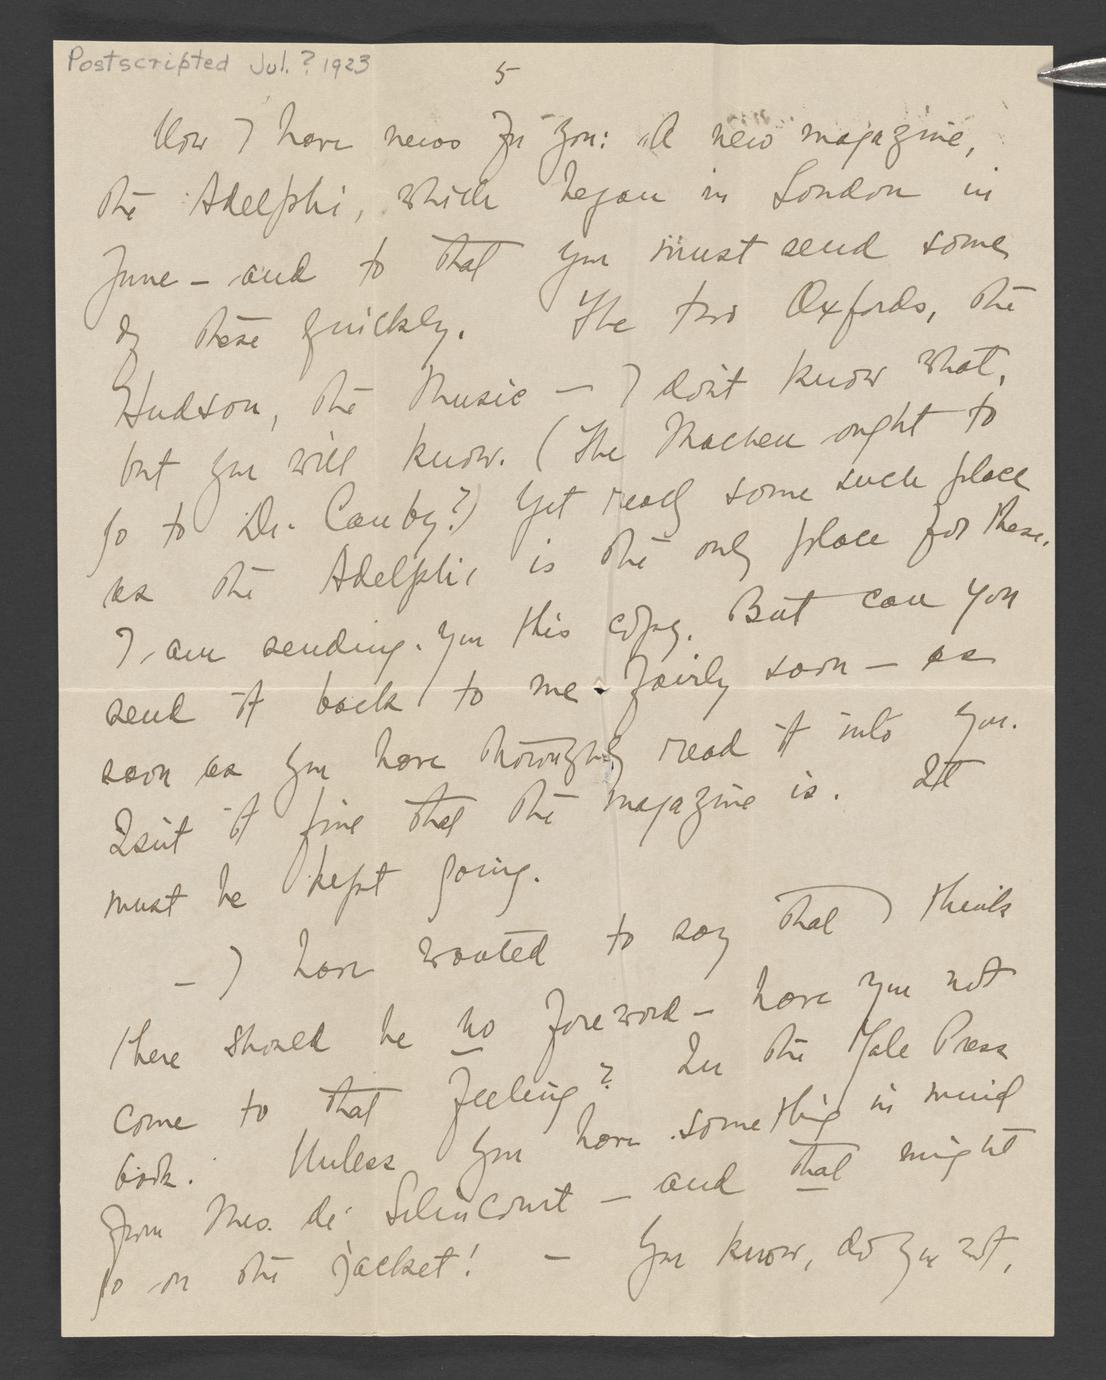 Postscripted Jul. ? 1923
5
Now I have news for you: A new magazine,
the Adelphi, which began in London in
June – and to that you must send some
of these quickly. The two Oxfords, the
Hudson, the Music – I don't know what,
but you will know. (The Machen ought to
go to Dr. Canby?) Yet really some such place
as the Adelphi is the only place for these.
I am sending you this copy. But can you
send it back to me fairly soon – as
soon as you have thoroughly read it into you.
Isn't it fine that the magazine is. It
must be kept going.
– I have wanted to say that I think
there should be no foreword – have you not
come to that feeling? In the Yale Press
book. Unless you have something in mind
from Mrs. de Selincourt – and that might
go on the jacket! – You know, do you not,